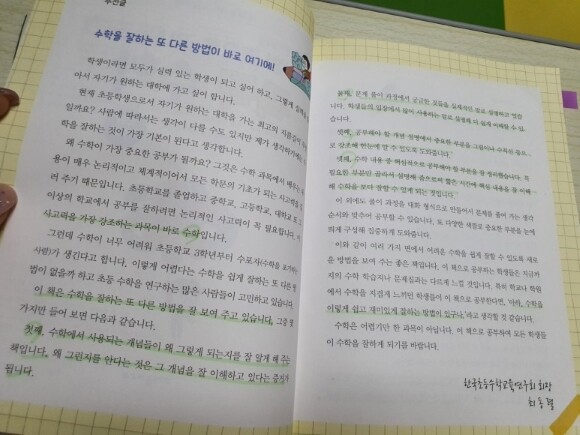 추천글
수학을 잘하는 또 다른 방법이 바로 여기에!
학생이라면 모두가 실력 있는 학생이 되고 싶어 하고, 그렇게
아서 자기가 원하는 대학에 가고 싶어 합니다.
현재 초등학생으로서 자기가 원하는 대학을 가는 최고의 지름길은
일까요? 사람에 따라서는 생각이 다를 수도 있지만 제가 생각하기에는
학을 잘하는 것이 가장 기본이 된다고 생각합니다.
왜 수학이 가장 중요한 공부가 될까요? 그것은 수학 과목에서 배우는
용이 매우 논리적이고 체계적이어서 모든 학문의 기초가 되는 사고력을
러 주기 때문입니다. 초등학교를 졸업하고 중학교, 고등학교, 대학교
이상의 학교에서 공부를 잘하려면 논리적인 사고력이 꼭 필요합니다.
사고력을 가장 강조하는 과목이 바로 수학입니다.
그런데 수학이 너무 어려워 초등학교 3학년부터 수포자(수학을 포기하는
사람)가 생긴다고 합니다. 이렇게 어렵다는 수학을 쉽게 잘하는 또 다른 방
법이 없을까 하고 초등 수학을 연구하는 많은 사람들이 고민하고 있습니다.
이 책은 수학을 잘하는 또 다른 방법을 잘 보여 주고 있습니다. 그중 몇
가지만 들어 보면 다음과 같습니다.
첫째, 수학에서 사용되는 개념들이 왜 그렇게 되는지를 잘 알게 해 주는
책입니다. 왜 그런지를 안다는 것은 그 개념을 잘 이해하고 있다는 증거가
됩니다.
둘째, 문제 풀이 과정에서 궁금한 점들을 실제적인 말로 설명하고 있습
니다. 학생들의 입장에서 많이 사용하는 말로 설명해 더 쉽게 이해할 수 있
습니다.
셋째, 공부해야 할 개념 설명에서 중요한 부분을 그림이나 수직선 등으
로 강조해 한눈에 알 수 있도록 도와줍니다.
넷째, 수학 내용 중 핵심적으로 공부해야 할 부분을 잘 정리했습니다. 꼭
필요한 부분만 골라서 설명해 줌으로써 짧은 시간에 핵심 내용을 잘 이해
해 수학을 보다 잘할 수 있게 되는 것입니다.
이 외에도 풀이 과정을 대화 형식으로 만들어서 문제를 풀어 가는 생각
순서와 맞추어 공부할 수 있습니다. 또 다양한 색깔로 중요한 부분을 눈에
띄게 구성해 집중하게 도와줍니다.
이와 같이 여러 가지 면에서 어려운 수학을 쉽게 잘할 수 있도록 새로
운 방법을 보여 주는 좋은 책입니다. 이 책으로 공부하는 학생들은 지금까
지의 수학 학습지나 문제집과는 다르게 느낄 것입니다. 특히 학교나 학원
에서 수학을 지겹게 느끼던 학생들이 이 책으로 공부한다면, '아하, 수학을
이렇게 쉽고 재미있게 잘하는 방법이 있구나.'라고 생각할 것 같습니다.
수학은 어렵기만 한 과목이 아닙니다. 이 책으로 공부하여 모든 학생들
이 수학을 잘하게 되기를 바랍니다.
한국초등수학교육연구회 회장